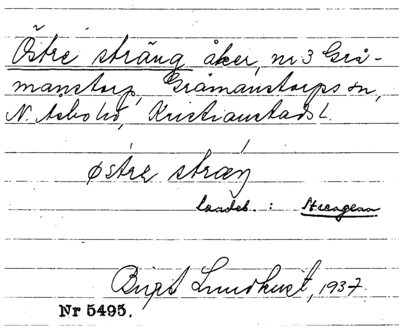 Östre sträng åker, nr 3 Grå-
manstorp, Gråmanstorps sn,
N. Åsbo hd, Kristianstads l.
østre stræŋ
landsb. : Strengenn
Birgit Lundkvist, 1937.
Nr 5495.